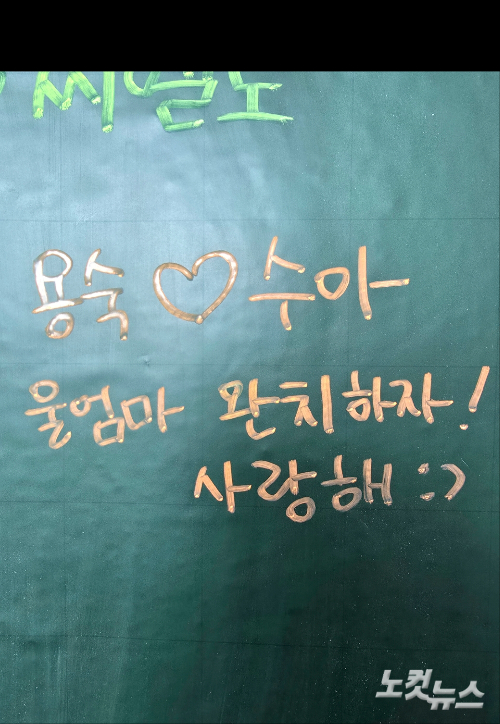 씨엘도
용수 ♡ 수아
울엄마 완치하자!
사랑해 :)
노컷뉴스